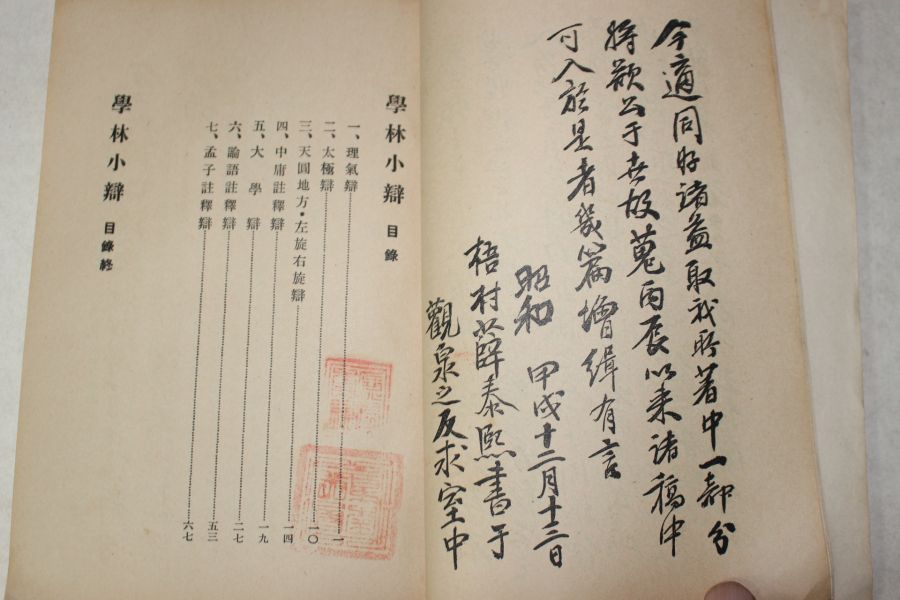 今適同好諸益取我所著中一部分
將欲公于世故蒐丙辰以来諸稿中
可入於是者幾篇增緝有言
昭和 甲戌十二月十三日
梧村薛泰熙書于
觀泉之反求室中
學林小辯 目錄
一、理氣辯 一
二、太極辯
三、天圓地方·左旋右旋辯 一〇
四、中庸註釋辯 一四
五、大學辯 一九
六、論語註釋辯 二七
七、孟子註釋辯 五三
六七
學林小辯 目錄終